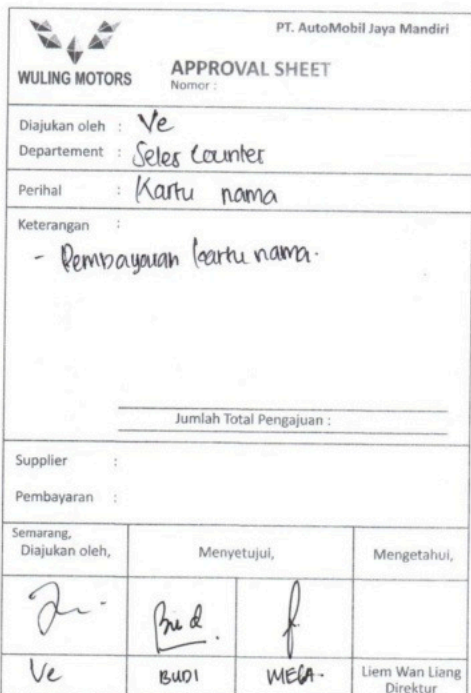 PT. AutoMobil Jaya Mandiri
WULING MOTORS
APPROVAL SHEET
Nomor :
Diajukan oleh : Ve
Departement : Seles Counter
Perihal : Kartu nama
Keterangan :
- Pembayaran kartu nama.
Jumlah Total Pengajuan :
Supplier :
Pembayaran :
Semarang,
Diajukan oleh, Menyetujui, Mengetahui,
Ve BUDI MEGA. Liem Wan Liang
Direktur